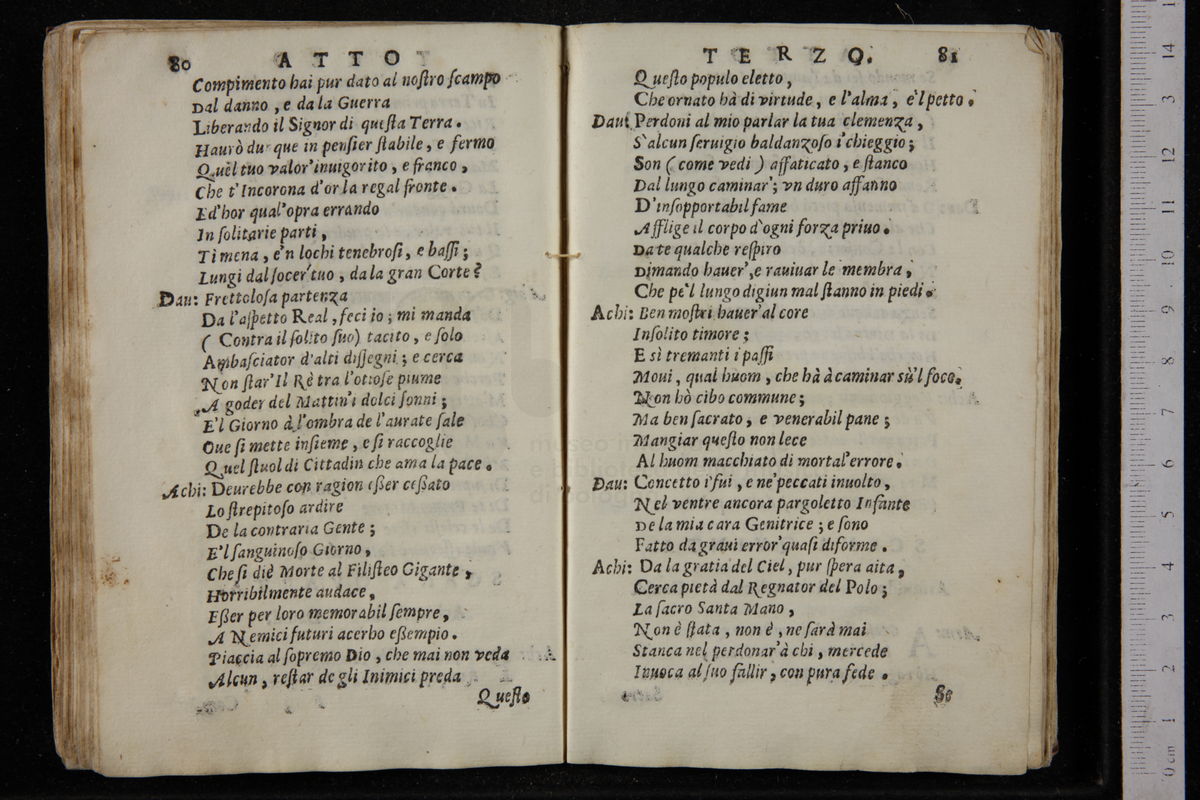 80 ATTO
Compimento hai pur dato al noſtro ſcampo
Dal danno, e da la Guerra
Liberando il Signor di queſta Terra.
Haurò dunque in penſier ſtabile, e fermo
Quel tuo valor' inuigorito, e franco,
Che t'Incorona d'or la regal fronte.
Ed'hor qual'opra errando
In ſolitarie parti,
Ti mena, e'n lochi tenebroſi, e baſſi;
Lungi dal ſocer' tuo, da la gran Corte?
Dau: Frettoloſa partenza
Da l'aſpetto Real, feci io; mi manda
(Contra il ſolito ſuo) tacito, e ſolo
Ambaſciator d'alti diſſegni; e cerca
Non ſtar' Il Rè tra l'otioſe piume
A goder del Mattin' i dolci ſonni;
E'l Giorno à l'ombra de l'aurate ſale
Oue ſi mette inſieme, e ſi raccoglie
Quel ſtuol di Cittadin che ama la pace.
Achi: Deurebbe con ragion eßer ceßato
Lo ſtrepitoſo ardire
De la contraria Gente;
E'l ſanguinoſo Giorno,
Che ſi diè Morte al Filiſteo Gigante,
Horribilmente audace,
Eßer per loro memorabil ſempre,
A Nemici futuri acerbo eßempio.
Piaccia al ſopremo Dio, che mai non veda
Alcun, reſtar de gli Inimici preda
Queſto
TERZO. 81
Queſto populo eletto,
Che ornato hà di virtude, e l'alma, e'l petto.
Dau: Perdoni al mio parlar la tua clemenza,
S'alcun ſeruigio baldanzoſo i' chieggio;
Son (come vedi) affaticato, e ſtanco
Dal lungo caminar'; vn duro affanno
D'inſopportabil fame
Afflige il corpo d'ogni forza priuo.
Date qualche reſpiro
Dimando hauer', e rauiuar le membra,
Che pe'l lungo digiun mal ſtanno in piedi.
Achi: Ben moſtri hauer' al core
Inſolito timore;
E sì tremanti i paſſi
Moui, qual huom, che hà à caminar sù'l foco.
Non hò cibo commune;
Ma ben ſacrato, e venerabil pane;
Mangiar queſto non lece
Al huom macchiato di mortal' errore.
Dau: Concetto i' fui, e ne' peccati inuolto,
Nel ventre ancora pargoletto Infante
De la mia cara Genitrice; e ſono
Fatto da graui error' quaſi diforme.
Achi: Da la gratia del Ciel, pur ſpera aita,
Cerca pietà dal Regnator del Polo;
La ſacro Santa Mano,
Non è ſtata, non è, ne ſarà mai
Stanca nel perdonar' à chi, mercede
Inuoca al ſuo fallir, con pura fede.
Se